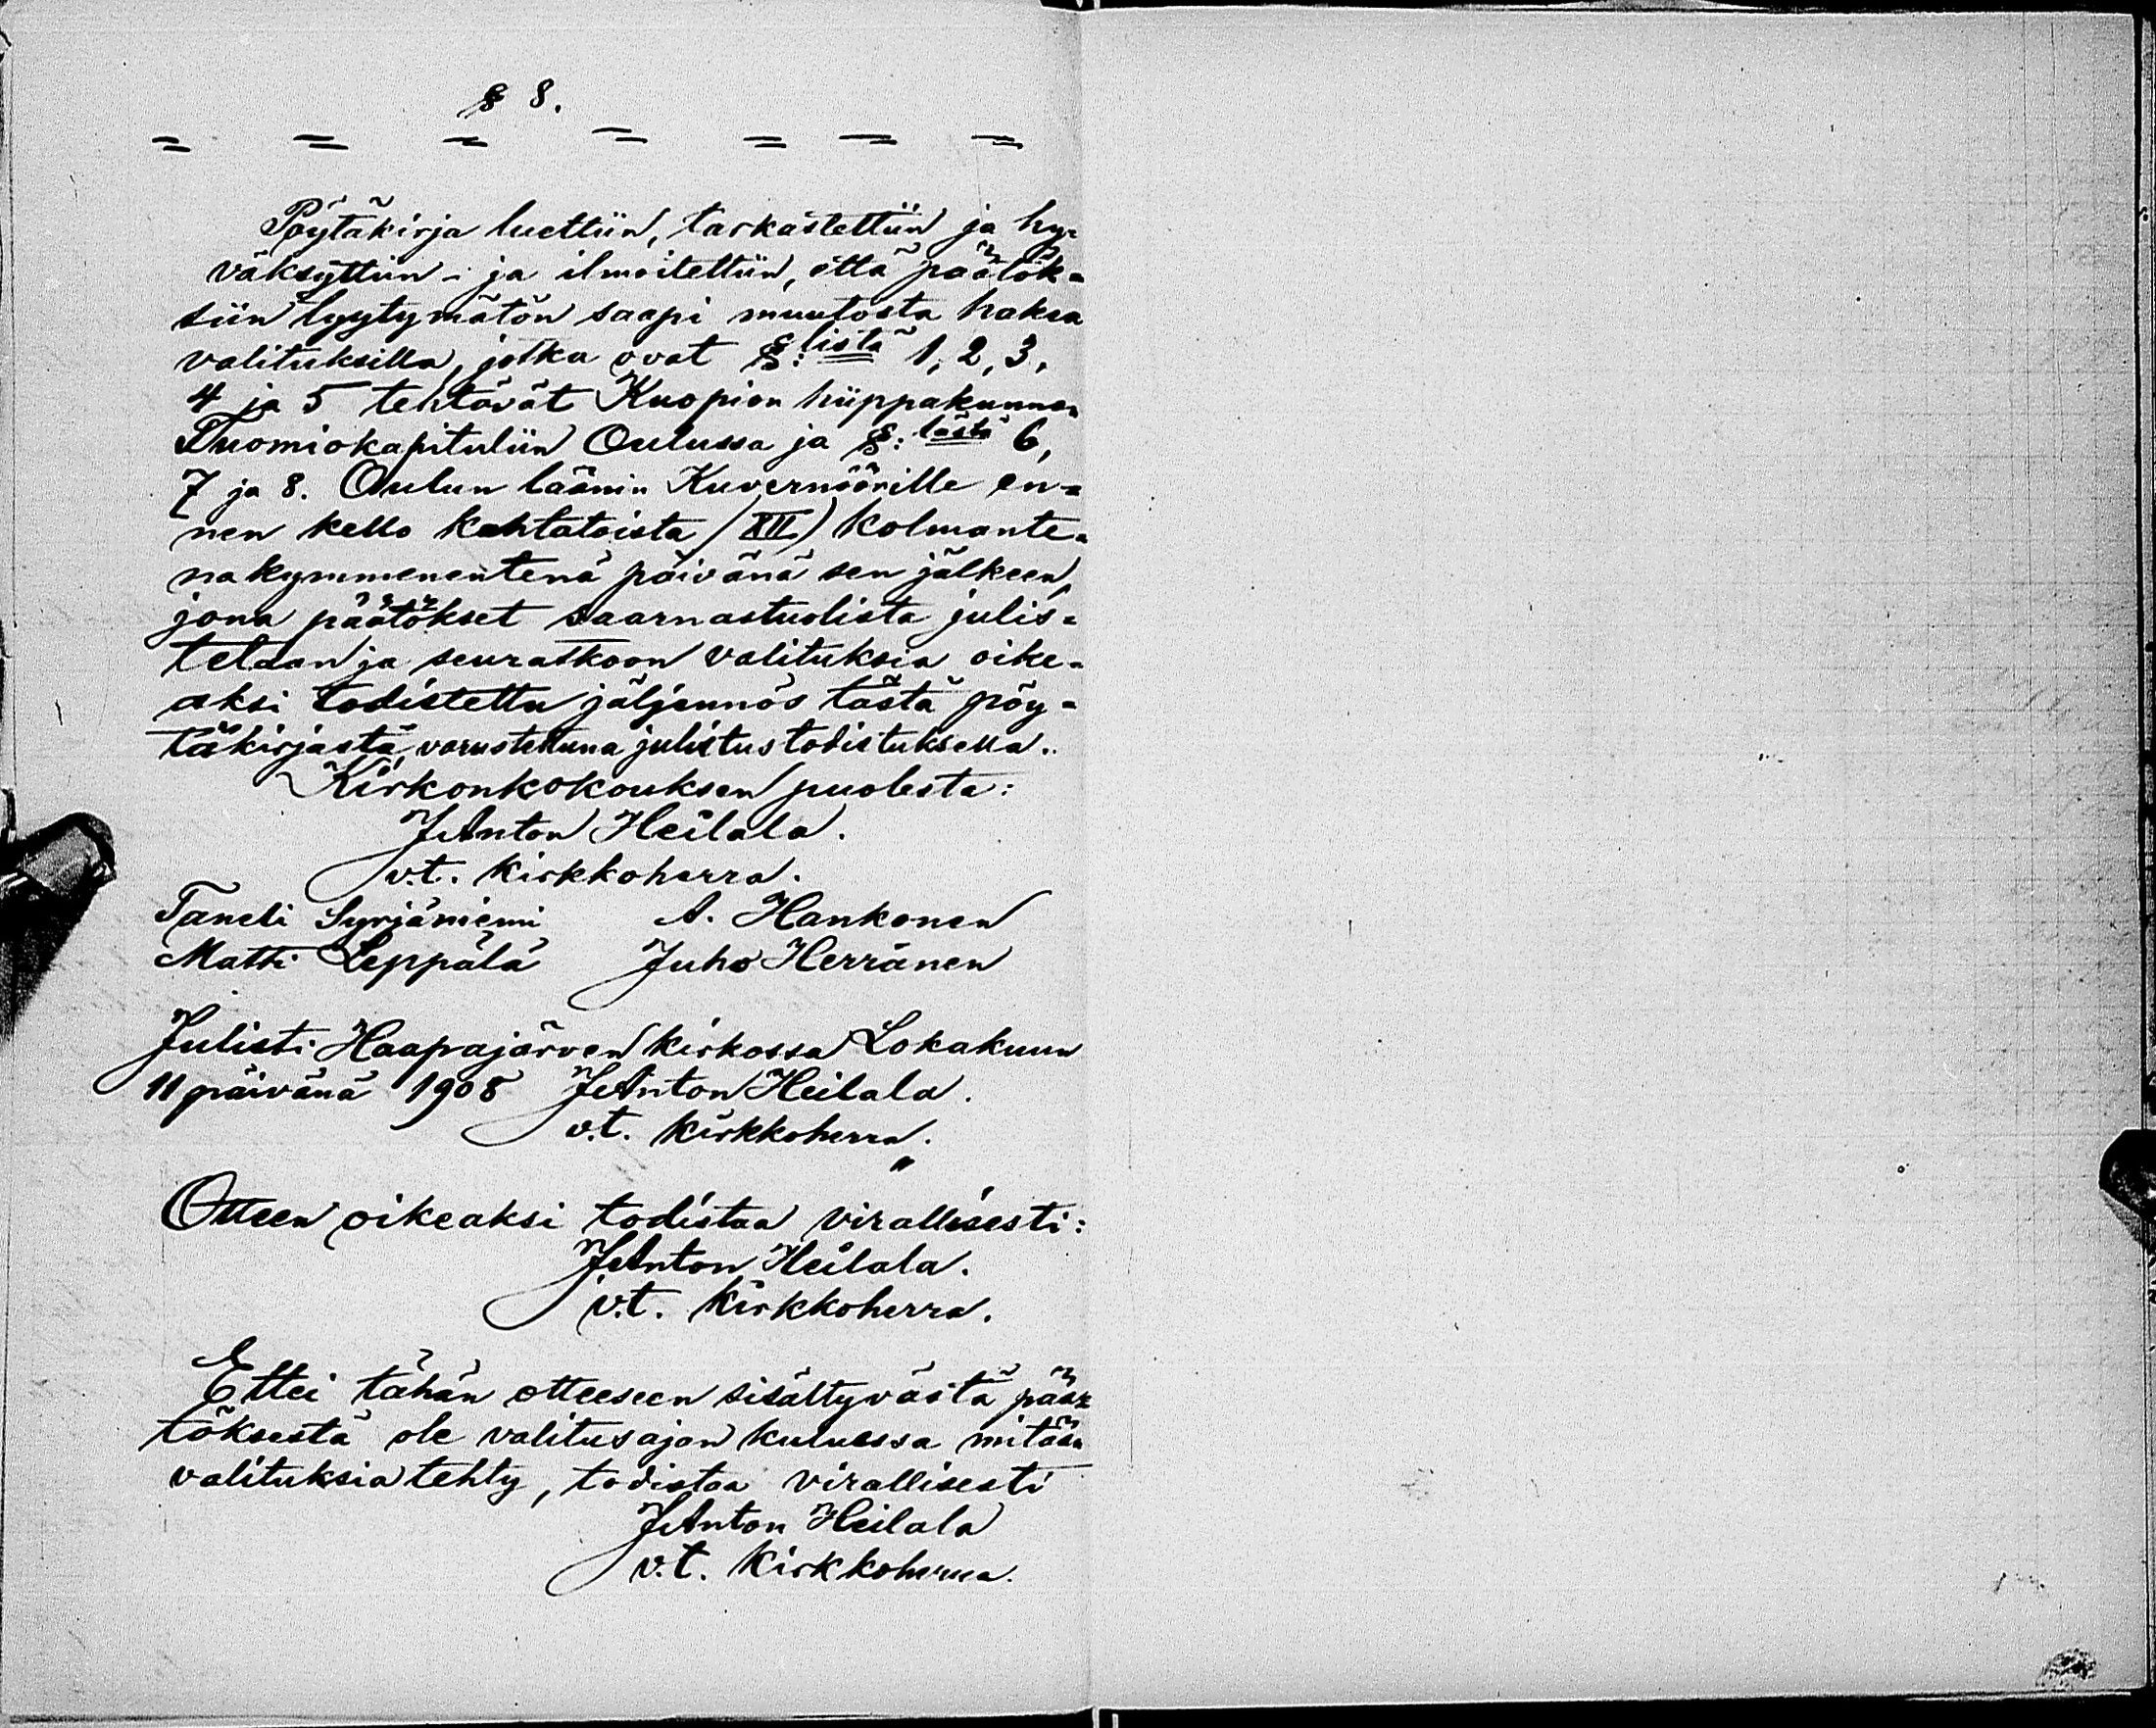 § 8.
= = = = = = =
Pöytäkirja luettiin, tarkastettiin ja hy=
väksyttiin - ja ilmoitettiin, että päätök=
siin tyytymätön saapi muutosta hakea
valituksilla, jotka ovat §:listä 1, 2, 3,
4 ja 5 tehtävät Kuopion hiippakunnan
Tuomiokapituliin Oulussa ja §:lästä 6,
7 ja 8. Oulun läänin Kuvernöörille en=
nen kello kahtatoista (XII) kolmante=
nakymmenentenä päivänä sen jälkeen,
jona päätökset saarnastuolista julis=
tetaan ja seuratkoon valituksia oike=
aksi todistettu jäljennös tästä pöy=
täkirjasta, varustettuna julistustodistuksella.
Kirkonkokouksen puolesta:
J Anton Heilala.
v.t. kirkkoherra.
Taneli Syrjäniemi A. Hankonen
Matti Leppälä Juho Herränen
Julisti Haapajärven kirkossa Lokakuun
11 päivänä 1908 J Anton Heilala.
v.t. kirkkoherra.
Otteen oikeaksi todistaa virallisesti:
J Anton Heilala.
v.t. kirkkoherra.
Ettei tähän otteeseen sisältyvästä pää=
töksestä ole valitusajan kuluessa mitään
valituksia tehty, todistaa virallisesti
J Anton Heilala
v.t. kirkkoherra.